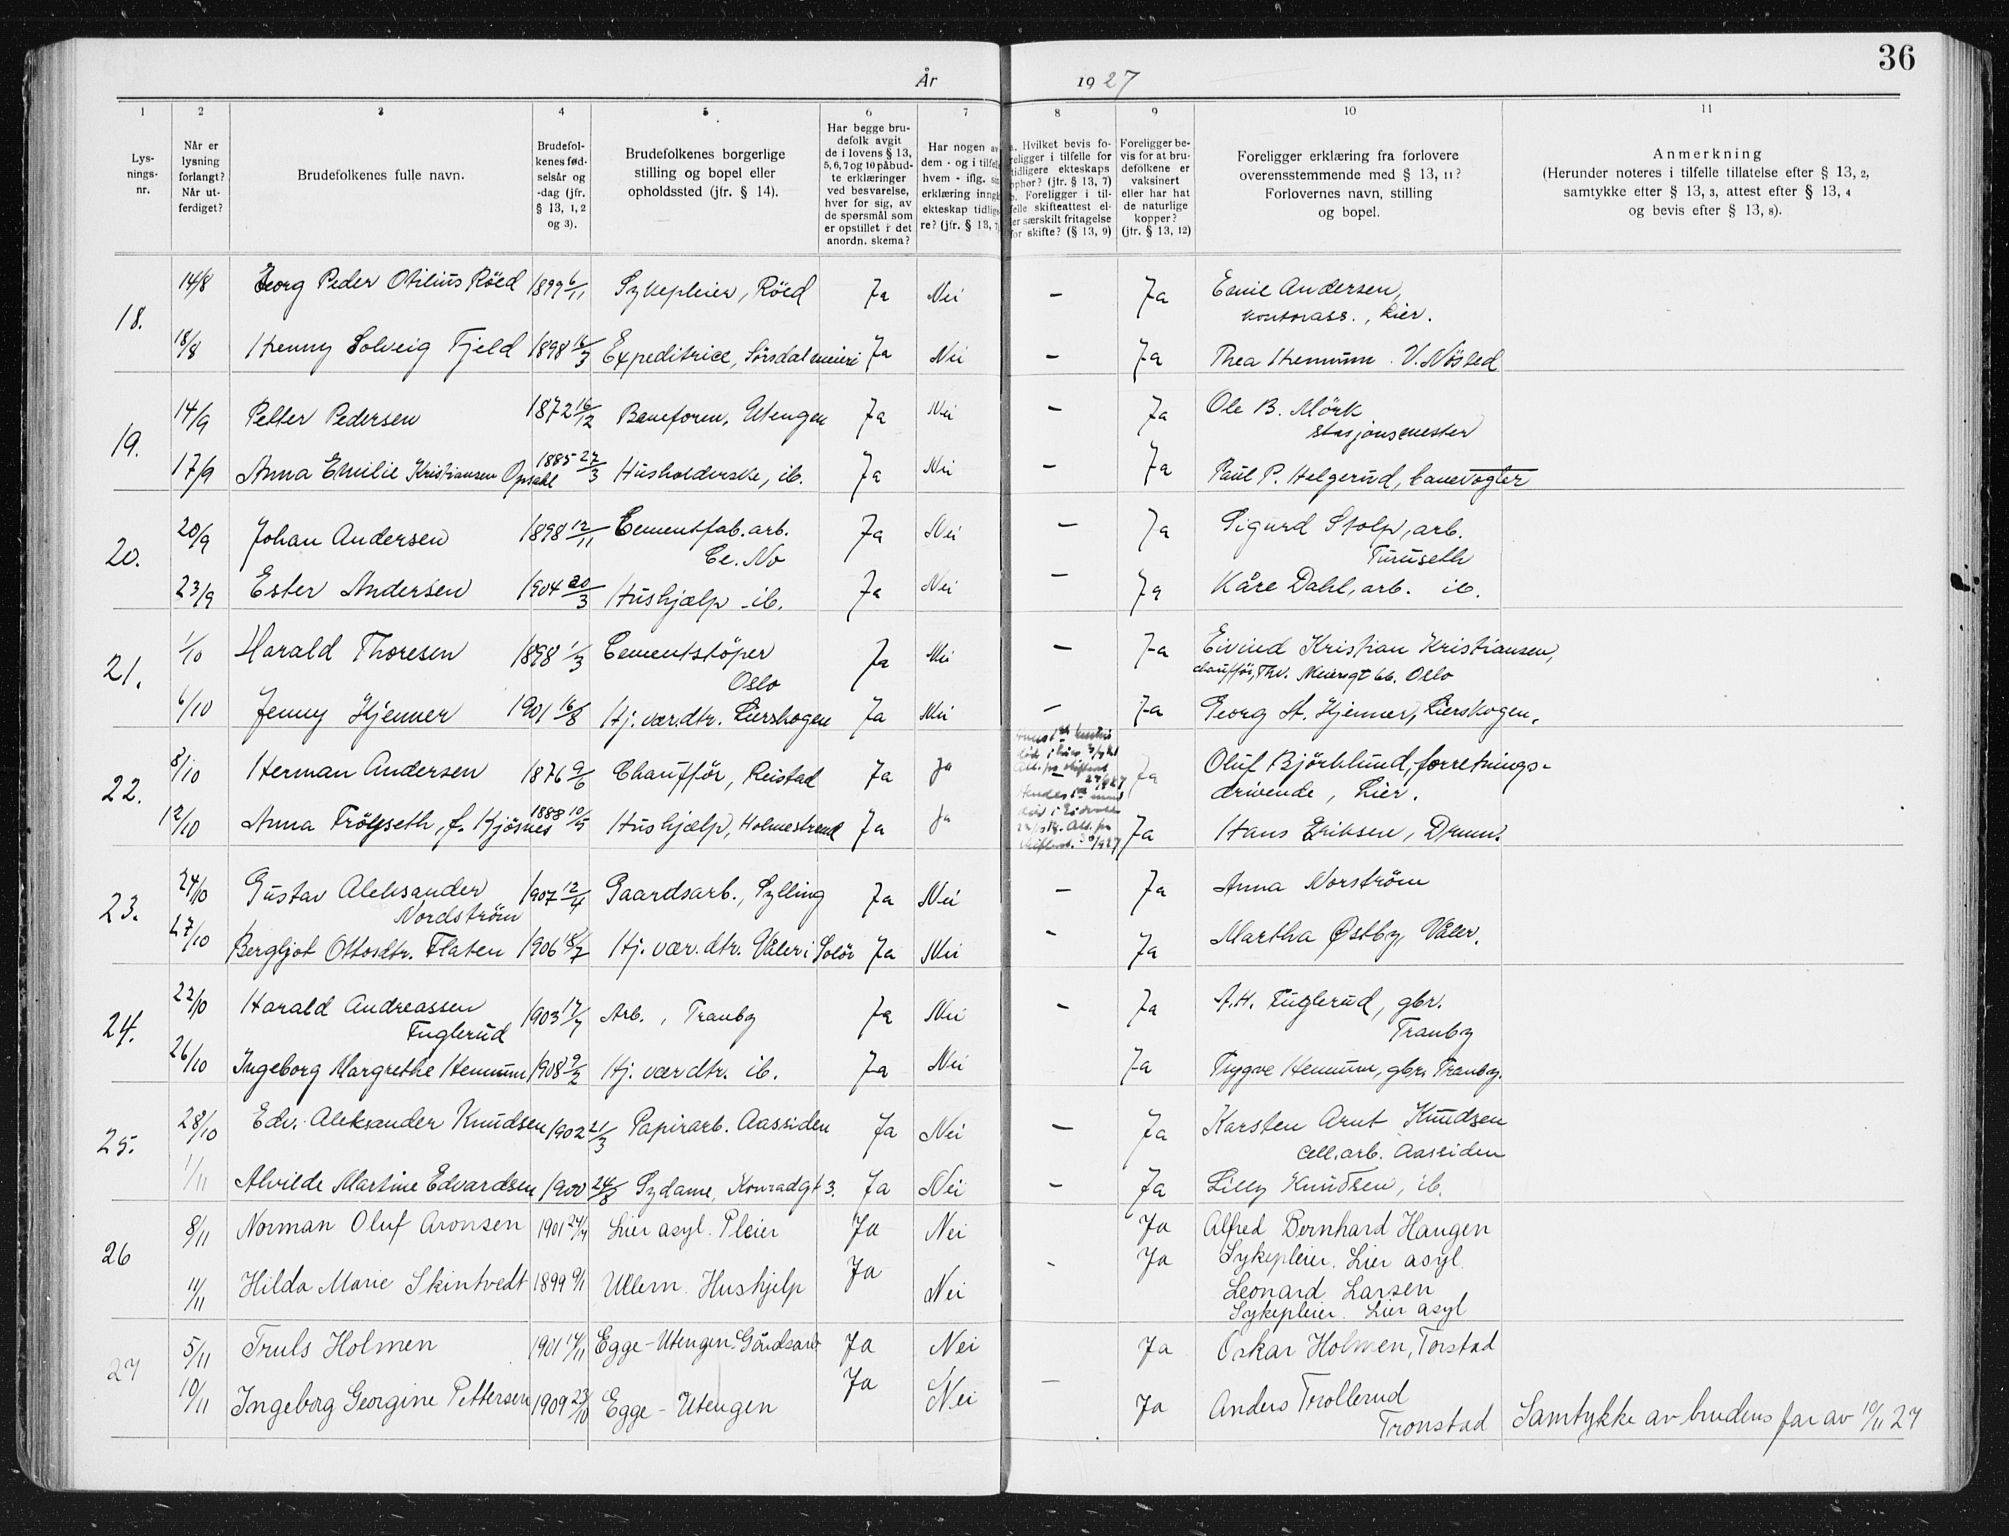 36
År 1927
1 2 3 4 5 6 7 8 9 10 11
Lys-
nings-
nr.
Når er
lysning
forlangt?
Når ut-
ferdiget?
Brudefolkenes fulle navn.
Brudefol-
kenes fød-
selsår og
-dag (jfr.
§ 13, 1, 2
og 3).
Brudefolkenes borgerlige
stilling og bopel eller
opholdssted (jfr. § 14).
Har begge bru-
defolk avgit
de i lovens § 13,
5, 6, 7 og 10 påbud-
te erklæringer
ved besvarelse,
hver for sig, av
de spørsmål som
er opstillet i det
anordn. skema?
Har nogen av
dem - og i tilfelle
hvem - iflg.
erklæring inngåt
ekteskap tidlige-
re? (jfr. § 13, 7)
a. Hvilket bevis fo-
religger i tilfelle for
tidligere ekteskaps
ophør? (jfr. § 13, 7)
b. Foreligger i til-
felle skifteattest el-
ler særskilt fritagelse
for skifte? (§ 13, 9)
Foreligger be-
vis for at bru-
defolkene er
vaksinert
eller har hat
de naturlige
kopper?
(jfr. § 13, 12)
Foreligger erklæring fra forlovere
overensstemmende med § 13, 11?
Forlovernes navn, stilling
og bopel.
Anmerkning
(Herunder noteres i tilfelle tillatelse efter § 13, 2,
samtykke efter § 13, 3, attest efter § 13, 4
og bevis efter § 13, 8).
18.
14/8 Georg Peder Otilius Röed 1899 6/11 Sykepleier, Röed Ja Nei – Ja Emil Andersen,
kontorass., Lier.
18/8 Henny Solveig Fjeld 1898 16/3 Expeditrice, Sörsdal meieri Ja Nei – Ja Thea Hemnum. V. Nösted
19.
14/9 Petter Pedersen 1872 16/12 Baneform. Utengen Ja Nei – Ja Ole B. Mörk
stasjonsmester
17/9 Anna Emilie Kristiansen Opsahl 1885 27/3 Husholderske, ib. Ja Nei – Ja Paul P. Helgerud, banevogter
20.
20/9 Johan Andersen 1898 12/11 Cementfab. arb. Ja Nei – Ja Sigurd Stolp, arb.
Ce. No Turuseth
23/9 Ester Andersen 1904 20/3 Hushjælp ib. Ja Nei – Ja Kåre Dahl, arb. ib.
21.
1/10 Harald Thoresen 1898 1/3 Cementstöper Ja Nei – Ja Eivind Kristian Kristiansen,
Oslo chaufför, Thv. Meiersgt 66. Oslo
6/10 Jenny Hjenner 1901 16/8 Hj. vær. dtr. Lierskogen Ja Nei – Ja Georg A. Hjenner, Lierskogen.
22.
8/10 Herman Andersen 1876 9/6 Chaufför, Reistad Ja Ja Ja Oluf Björklund, forretnings-
drivende, Lier.
12/10 Anna Fröyseth, f. Kjösnes 1888 10/5 Hushjælp, Holmestrand Ja Ja Ja Hans Eriksen, Dramm.
23.
24/10 Gustav Aleksander 1907 12/4 Gaardsarb., Sylling Ja Nei – Ja Anna Norström
Nordström
27/10 Bergljot Ottosdtr. Flaten 1906 18/7 Hj. vær. dtr. Våler i Solör Ja Nei – Ja Martha Østby, Våler.
24.
22/10 Harald Andreassen 1903 17/7 Arb., Tranby Ja Nei – Ja A. H. Fuglerud, gbr.
Fuglerud Tranby
26/10 Ingeborg Margrethe Hemnum 1908 9/2 Hj. vær dtr. ib. Ja Nei Ja Trygve Hemnum, gbr. Tranby.
25.
28/10 Edv. Aleksander Knudsen 1902 21/3 Papirarb. Aassiden Ja Nei – Ja Karsten Arnt Knudsen
cell. arb. Aassiden
1/11 Alvilde Martine Edvardsen 1900 24/8 Sydame, Konradgt 3. Ja Nei – Ja Lilly Knudsen, ib.
26
8/11 Norman Oluf Aronsen 1901 24/4 Lier asyl. Pleier Ja Nei Ja Alfred Bernhard Haugen
Ja Sykepleier. Lier asyl.
11/11 Hilda Marie Skintvedt 1899 9/1 Ullern. Hushjelp Ja Nei – Leonard Larsen
Sykepleier. Lier asyl
27
5/11 Truls Holmen 1901 14/11 Egge-Utengen. Gårdsarb Ja Nei Ja Oskar Holmen, Torstad
10/11 Ingeborg Georgine Pettersen 1909 23/10 Egge-Utengen Ja Nei – Ja Anders Trollerud
Tronstad Samtykke av brudens far av 10/11 27